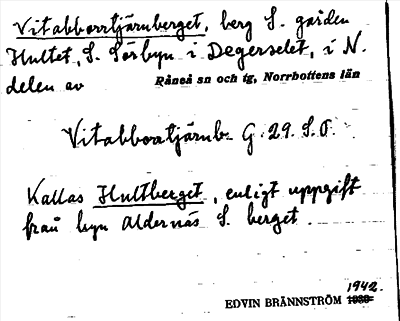 Vitabborrtjärnberget, berg S. gården
Hultet, S. Sörbyn i Degerselet, i N.
delen av Råneå sn och tg, Norrbottens län
Vitabborrtjärnb. G. 29. S.O.
Kallas Hultberget, enligt uppgift
från byn Aldernäs S. berget.
1942.
EDVIN BRÄNNSTRÖM 1939